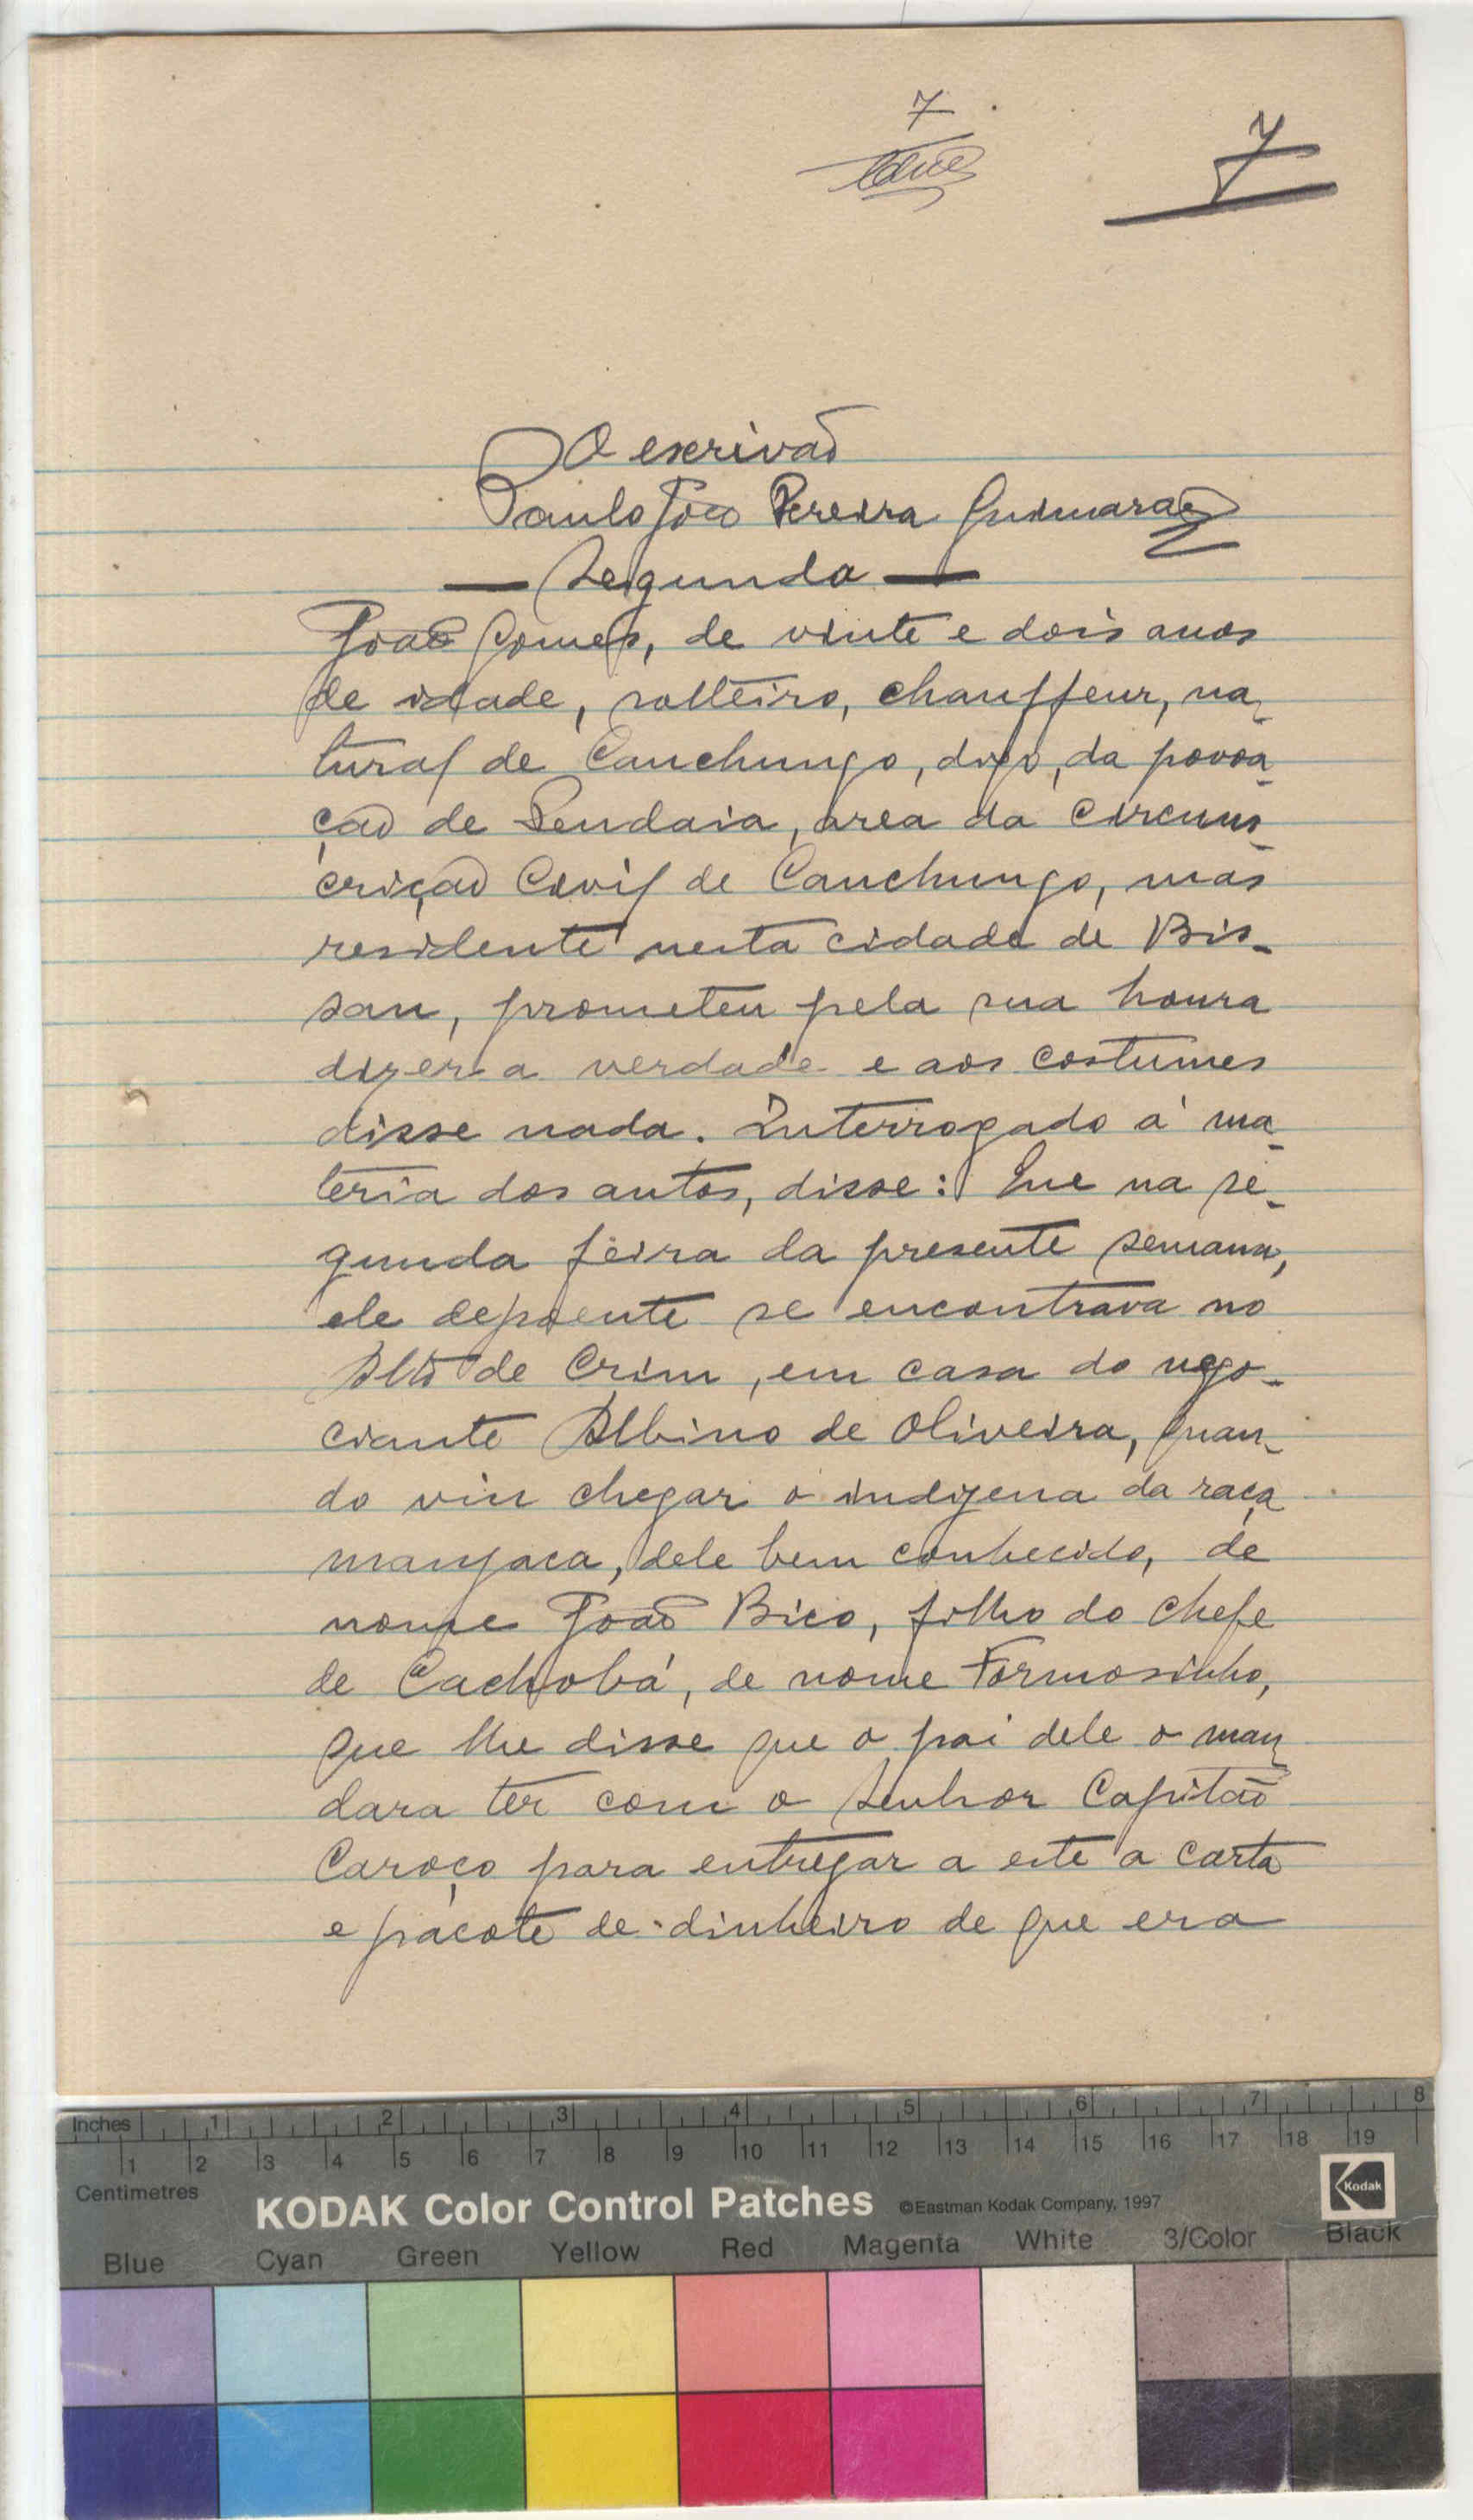 7
7
O escrivaõ
Paulo João Pereira Guimarães
— Segunda —
Joaõ Gomes, de vinte e dois anos
de idade, solteiro, chauffeur, na-
tural de Canchungo, digo, da povoa-
çaõ de Pendaia, area da Circuns-
criçaõ Civil de Canchungo, mas
residente nesta cidade de Bis-
sau, prometeu pela sua honra
dizer a verdade e aos costumes
disse nada. Interrogado á ma-
teria dos autos, disse: Que na se-
gunda feira da presente semana,
ele depoente se encontrava no
Alto de Crim, em casa do nego-
ciante Albino de Oliveira, quan-
do viu chegar o indigena da raça
manjaca, dele bem conhecido, de
nome Joaõ Bico, filho do chefe
de Cachobá, de nome Formosinho,
que lhe disse que o pai dele o man-
dara ter com o Senhor Capitão
Caroço para entregar a este a carta
e pacote de dinheiro de que era
Inches 1 2 3 4 5 6 7 8
1 2 3 4 5 6 7 8 9 10 11 12 13 14 15 16 17 18 19
Centimetres
KODAK Color Control Patches ©Eastman Kodak Company, 1997 Kodak
Blue Cyan Green Yellow Red Magenta White 3/Color Black